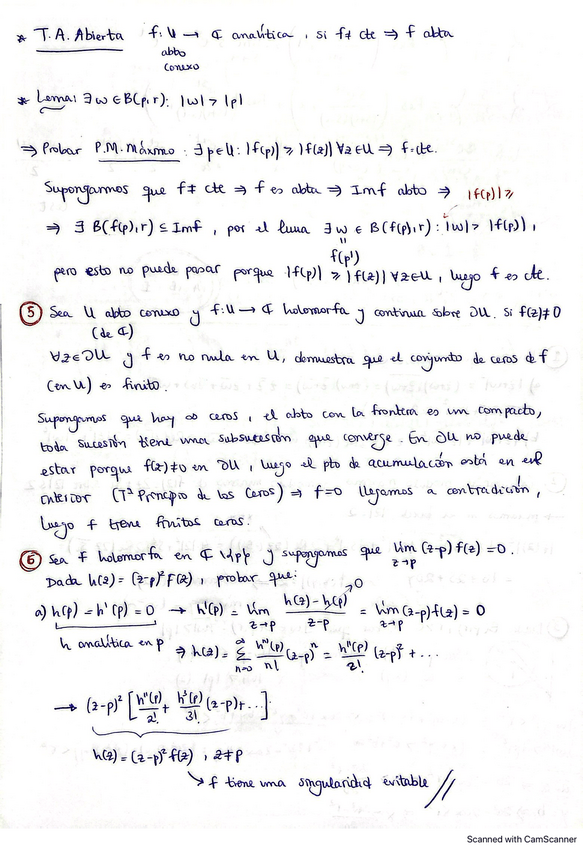 * T.A. Abierta f: U → ℂ analítica, si f ≠ cte ⇒ f abta
abto
conexo
* Lema: ∃ w ∈ B(p,r): |w| > |p|
⇒ Probar P.M. Máximo: ∃ p ∈ U: |f(p)| ≥ |f(z)| ∀z ∈ U ⇒ f = cte.
Supongamos que f ≠ cte ⇒ f es abta ⇒ Imf abto ⇒ |f(p)| ≥
⇒ ∃ B(f(p),r) ⊆ Imf, por el lema ∃ w ∈ B(f(p),r): |w| > |f(p)|,
=
f(p')
pero esto no puede pasar porque |f(p)| ≥ |f(z)| ∀z ∈ U, luego f es cte.
⑤ Sea U abto conexo y f: U → ℂ holomorfa y continua sobre ∂U. Si f(z) ≠ 0
(de ℂ)
∀z ∈ ∂U y f es no nula en U, demuestra que el conjunto de ceros de f
(en U) es finito.
Supongamos que hay ∞ ceros, el abto con la frontera es un compacto,
toda sucesión tiene una subsucesión que converge. En ∂U no puede
estar porque f(z) ≠ 0 en ∂U, luego el pto de acumulación está en el
interior (Tª Principio de los Ceros) ⇒ f = 0 llegamos a contradición,
luego f tiene finitos ceros.
⑥ Sea f holomorfa en ℂ \ {p} y supongamos que lim (z-p) f(z) = 0.
z→p
Dada h(z) = (z-p)² f(z), probar que:
a) h(p) = h'(p) = 0 → h'(p) = lim_{z→p} (h(z) - h(p))/(z-p) = lim_{z→p} (z-p) f(z) = 0
h analítica en p ⇒ h(z) = ∑_{n=0}^{∞} hⁿ(p)/n! (z-p)ⁿ = h''(p)/2! (z-p)² + ...
→ (z-p)² [h''(p)/2! + h³(p)/3! (z-p) + ...]
h(z) = (z-p)² f(z), z ≠ p
↘ f tiene una singularidad evitable //
Scanned with CamScanner